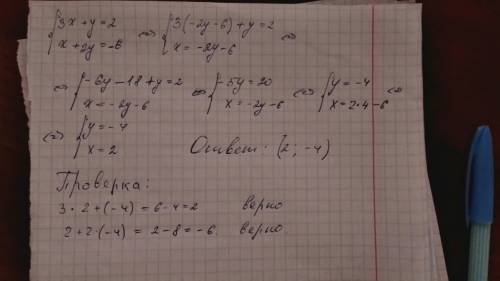 {3x+y=2 <=> {3(-2y-6)+y=2 <=>
{x+2y=-6 {x=-2y-6
<=> {-6y-18+y=2 <=> {-5y=20 <=> {y=-4 <=>
{x=-2y-6 {x=-2y-6 {x=2·4-6
<=> {y=-4
{x=2 Ответ: (2; -4)
Проверка:
3·2+(-4)=6-4=2 верно
2+2·(-4)=2-8=-6. верно.